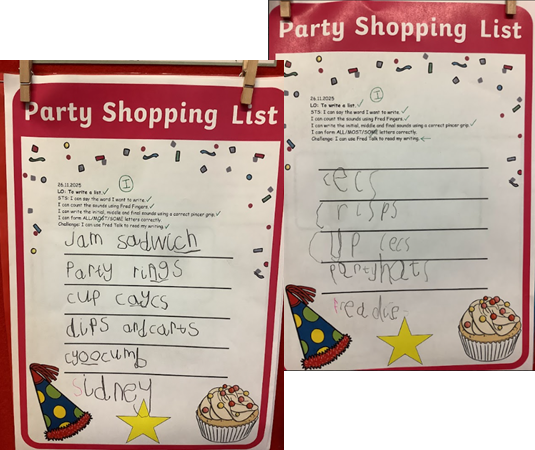 Party Shopping List
26.11.2025
LO: To write a list. ✓
STS: I can say the word I want to write. ✓
I can count the sounds using Fred Fingers. ✓
I can write the initial, middle and final sounds using a correct pincer grip. ✓
I can form ALL/MOST/SOME letters correctly.
Challenge: I can use Fred Talk to read my writing. ✓
I
Jam sadwich
Party rings
cup caycs
dips and carts
cyoocumb
Sidney
Party Shopping List
I
26.11.2025
LO: To write a list. ✓
STS: I can say the word I want to write. ✓
I can count the sounds using Fred Fingers. ✓
I can write the initial, middle and final sounds using a correct pincer grip. ✓
I can form ALL/MOST/SOME letters correctly.
Challenge: I can use Fred Talk to read my writing.
cecs
crisps
cup cecs
partyhats
Freddie